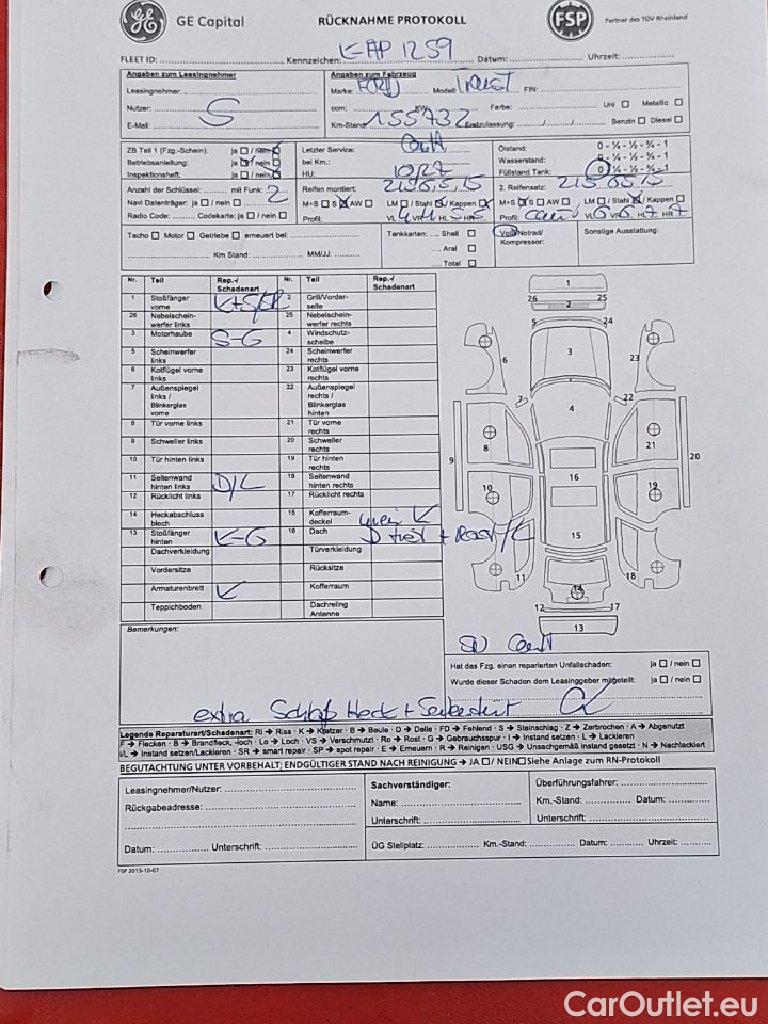 GE GE Capital RÜCKNAHME PROTOKOLL FSP Partner des TÜV Rheinland
FLEET ID: Kennzeichen: K-AP 1259 Datum: Uhrzeit:
Angaben zum Leasingnehmer Angaben zum Fahrzeug
Leasingnehmer: Marke: FORD Modell: FIN:
Nutzer: S ccm: KW: Farbe: Uni ☐ Metallic ☐
E-Mail: Km-Stand: 155732 Erstzulassung: Benzin ☐ Diesel ☐
ZBI Teil 1 (Fzg.-Schein): ja ☐ / nein Letzter Service: Ölstand: 0 - ¼ - ½ - ¾ - 1
Betriebsanleitung: ja / nein bei Km.: Wasserstand: 0 - ¼ - ½ - ¾ - 1
Inspektionsheft: ja ☐ / nein HU: Füllstand Tank: 0 - ¼ - ½ - ¾ - 1
Anzahl der Schlüssel: mit Funk: 2 Reifen montiert: 215 65 15 2. Reifensatz: 215 65 15
Navi Datenträger: ja ☐ / nein ☐ M+S ☐ S AW ☐ LM ☐ / Stahl / Kappen M+S S ☐ AW ☐ LM ☐ / Stahl / Kappen ☐
Radio Code: Codekarte: ja ☐ / nein ☐ Profil: VL 4 VR 4 HL 5 HR 5 Profil: VL 6 VR 6 HL 7 HR 7
Tacho ☐ Motor ☐ Getriebe ☐ erneuert bei: Tankkarten: Shell ☐ Voll/Notrad/ Sonstige Ausstattung:
Aral ☐ Kompressor:
Km Stand: MM/JJ: Total ☐
Nr. Teil Rep.-/ Schadenart Nr. Teil Rep.-/ Schadenart
1 Stoßfänger vorne 2 Grill/Vorderseite
26 Nebelscheinwerfer links 25 Nebelscheinwerfer rechts
3 Motorhaube S-G 4 Windschutzscheibe
5 Scheinwerfer links 24 Scheinwerfer rechts
6 Kotflügel vorne links 23 Kotflügel vorne rechts
7 Außenspiegel links / Blinkerglas vorne 22 Außenspiegel rechts / Blinkerglas hinten
8 Tür vorne links 21 Tür vorne rechts
9 Schweller links 20 Schweller rechts
10 Tür hinten links 19 Tür hinten rechts
11 Seitenwand hinten links D/L 18 Seitenwand hinten rechts
12 Rücklicht links 17 Rücklicht rechts
14 Heckabschlussblech 15 Kofferraumdeckel K
13 Stoßfänger hinten K-G 16 Dach D + Rost/L
Dachverkleidung Türverkleidung
Vordersitze Rücksitze
Armaturenbrett K Kofferraum
Teppichboden Dachreling Antenne
1
26 25
2
5 24
6 3 23
7 22
4
8 21
9 20
16
10 19
15
11 18
14
12 17
13
Bemerkungen:
Hat das Fzg. einen reparierten Unfallschaden: ja ☐ / nein ☐
Wurde dieser Schaden dem Leasinggeber mitgeteilt: ja ☐ / nein ☐
extra Heck +
Legende Reparaturart/Schadenart: RI → Riss - K → Kratzer - B → Beule - D → Delle - FD → Fehlend - S → Steinschlag - Z → Zerbrochen - A → Abgenutzt
F → Flecken - B → Brandfleck,-loch - Lo → Loch - VS → Verschmutzt - Ro → Rost - G → Gebrauchsspur - I → Instand setzen - L → Lackieren
I/L → Instand setzen/Lackieren - SR → smart repair - SP → spot repair - E → Erneuern - IR → Reinigen - USG → Unsachgemäß instand gesetzt - N → Nachlackiert
BEGUTACHTUNG UNTER VORBEHALT; ENDGÜLTIGER STAND NACH REINIGUNG → JA ☐ / NEIN ☐ Siehe Anlage zum RN-Protokoll
Leasingnehmer/Nutzer: Sachverständiger: Überführungsfahrer:
Rückgabeadresse: Name: Km.-Stand: Datum:
Unterschrift: Unterschrift:
Datum: Unterschrift: ÜG Stellplatz: Km.-Stand: Datum: Uhrzeit:
FSP 2015-10-07
CarOutlet.eu